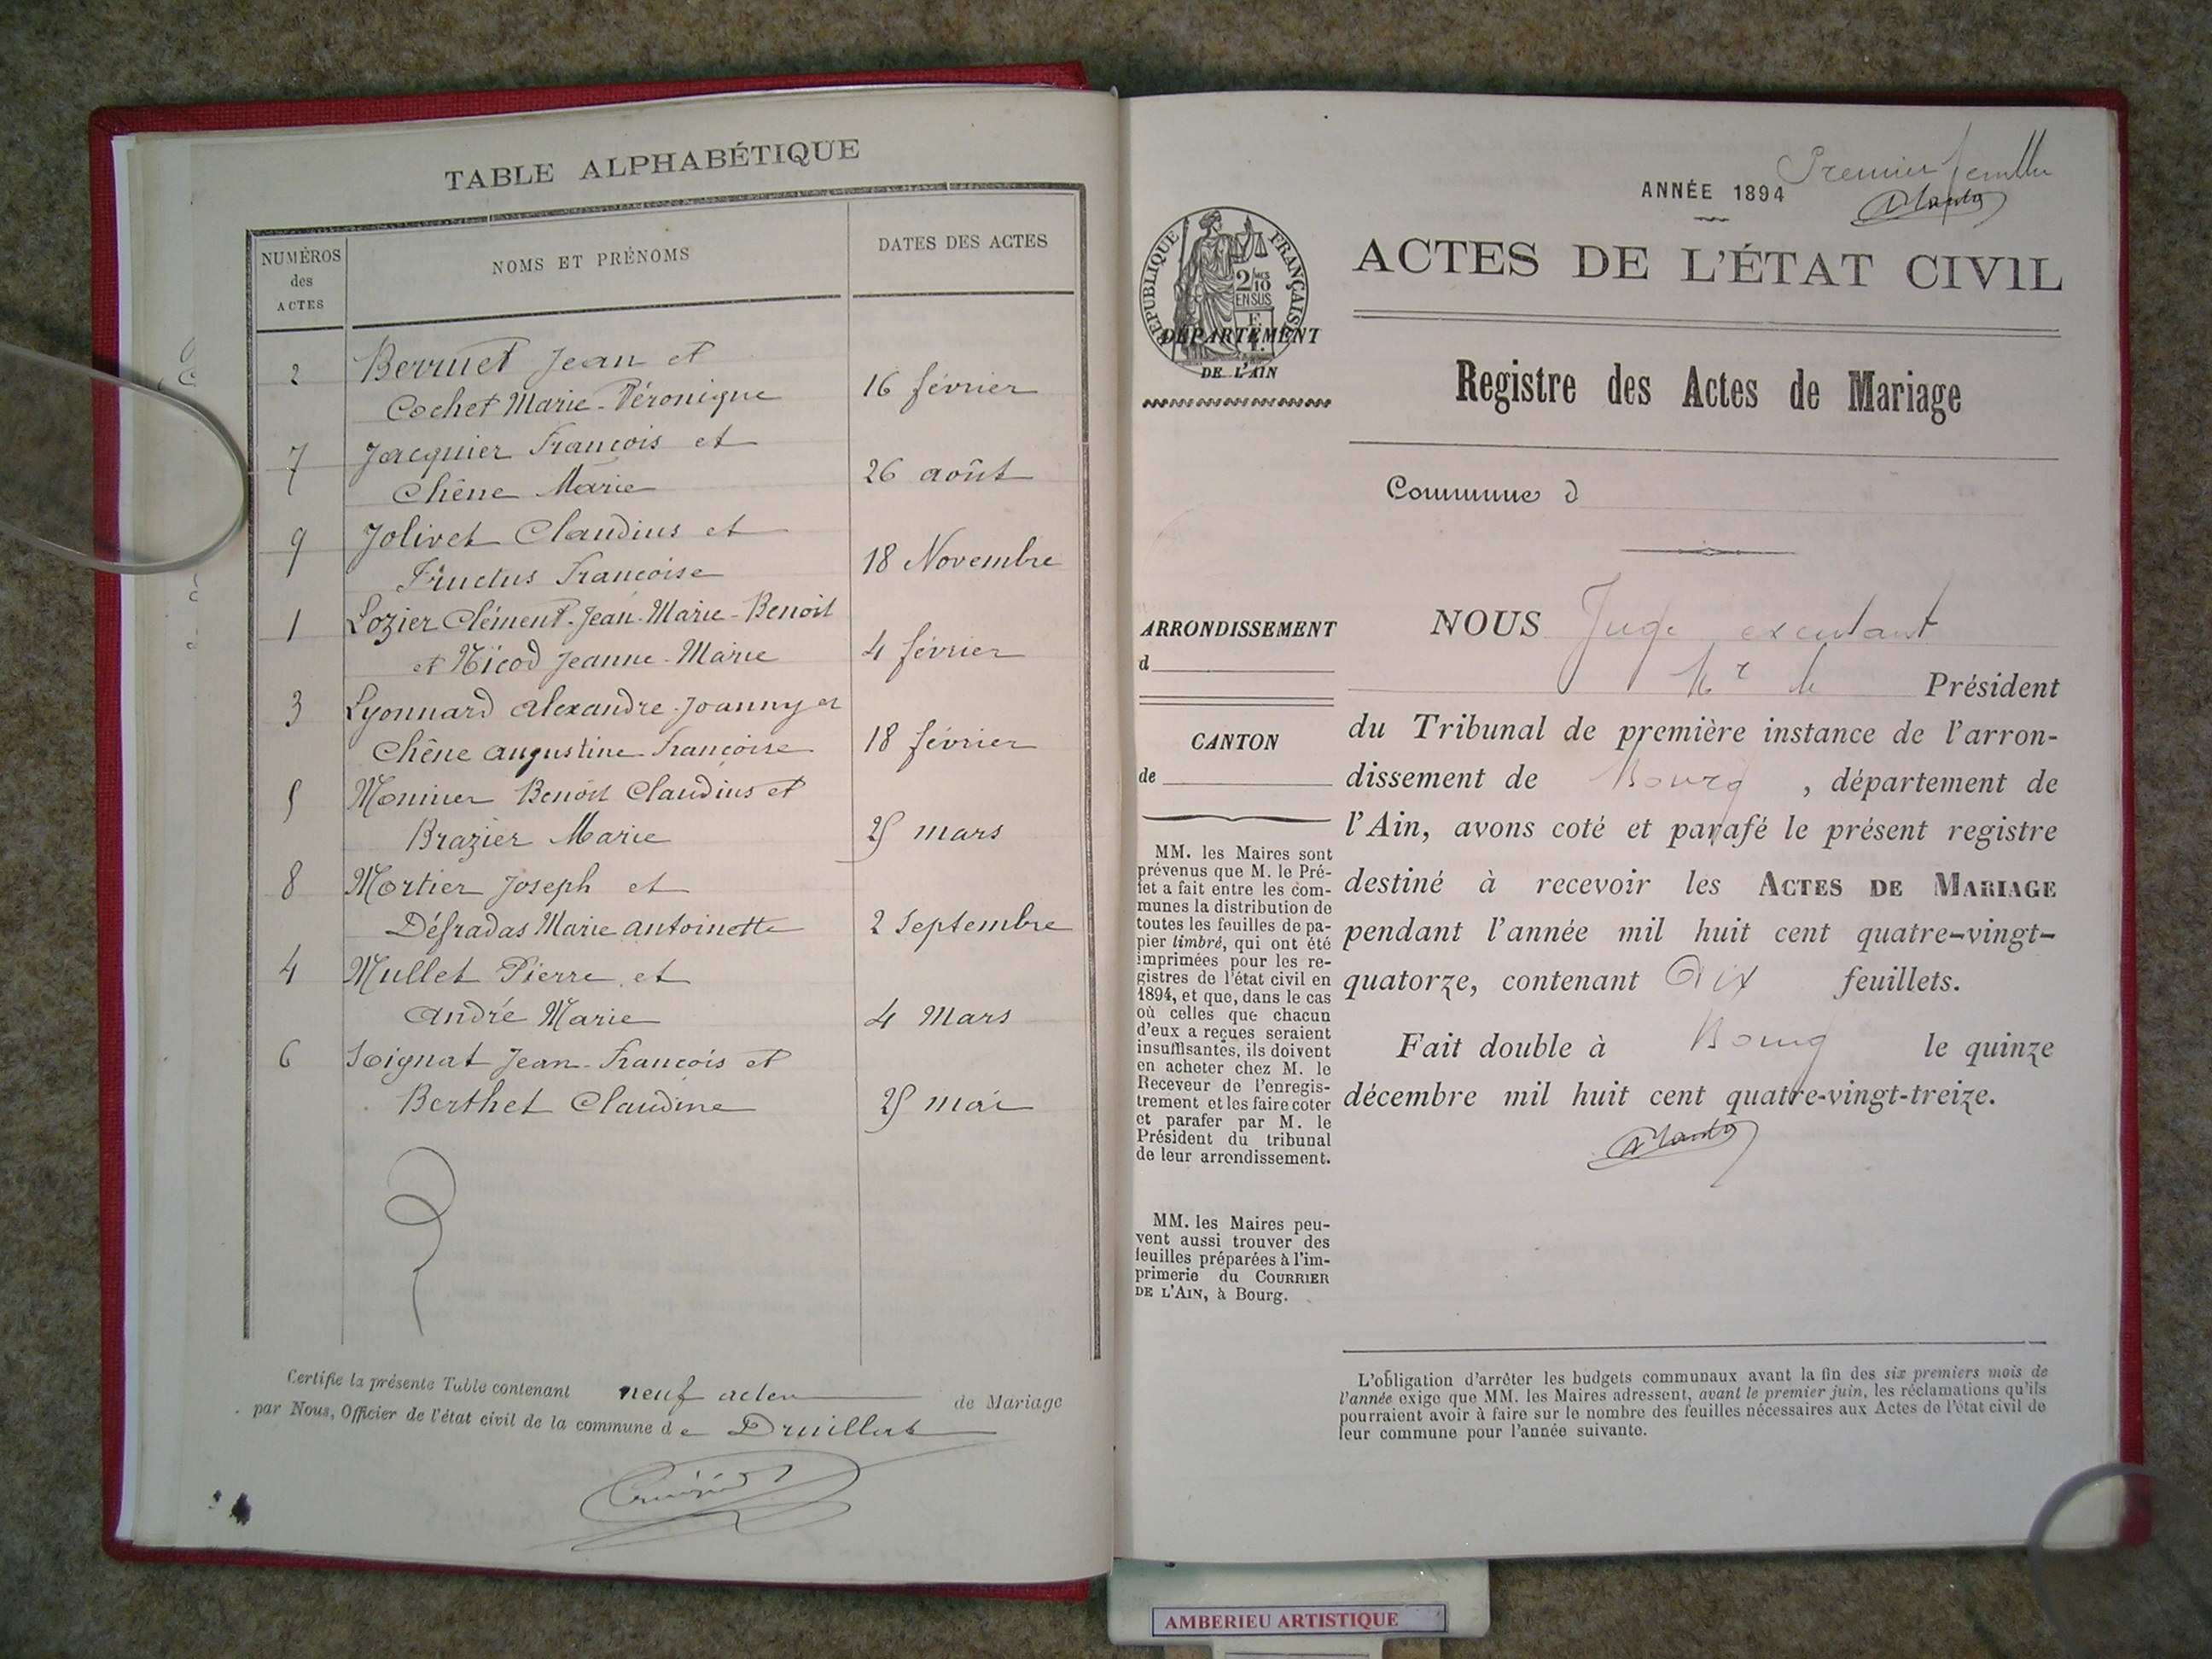 TABLE ALPHABÉTIQUE
NUMÉROS
des
ACTES
NOMS ET PRÉNOMS
DATES DES ACTES
2 Berruet Jean et
Cochet Marie-Véronique 16 février
7 Jacquier François et
Chêne Marie 26 août
9 Jolivet Claudius et
Fructus Françoise 18 Novembre
1 Lozier Clément-Jean-Marie-Benoit
et Nicod Jeanne-Marie 4 février
3 Lyonnard Alexandre-Joanny et
Chêne Augustine Françoise 18 février
5 Benoit Claudius et
Brazier Marie 25 mars
8 Mortier Joseph et
Défradas Marie Antoinette 2 Septembre
4 Mullet Pierre et
André Marie 4 Mars
6 Soignat Jean-François et
Berthet Claudine 25 mai
Certifie la présente Table contenant neuf actes de Mariage
par Nous, Officier de l'état civil de la commune de Druillat
Premier feuillet
ANNÉE 1894
RÉPUBLIQUE FRANÇAISE
2/10
EN SUS
DÉPARTEMENT
DE L'AIN
ACTES DE L'ÉTAT CIVIL
Registre des Actes de Mariage
Commune d
ARRONDISSEMENT
d
CANTON
de
MM. les Maires sont
prévenus que M. le Pré-
fet a fait entre les com-
munes la distribution de
toutes les feuilles de pa-
pier timbré, qui ont été
imprimées pour les re-
gistres de l'état civil en
1894, et que, dans le cas
où celles que chacun
d'eux a reçues seraient
insuffisantes, ils doivent
en acheter chez M. le
Receveur de l'enregis-
trement et les faire coter
et parafer par M. le
Président du tribunal
de leur arrondissement.
MM. les Maires peu-
vent aussi trouver des
feuilles préparées à l'im-
primerie du COURRIER
DE L'AIN, à Bourg.
NOUS Juge
Président
du Tribunal de première instance de l'arron-
dissement de Bourg, département de
l'Ain, avons coté et parafé le présent registre
destiné à recevoir les ACTES DE MARIAGE
pendant l'année mil huit cent quatre-vingt-
quatorze, contenant Dix feuillets.
Fait double à Bourg le quinze
décembre mil huit cent quatre-vingt-treize.
L'obligation d'arrêter les budgets communaux avant la fin des six premiers mois de
l'année exige que MM. les Maires adressent, avant le premier juin, les réclamations qu'ils
pourraient avoir à faire sur le nombre des feuilles nécessaires aux Actes de l'état civil de
leur commune pour l'année suivante.
AMBERIEU ARTISTIQUE